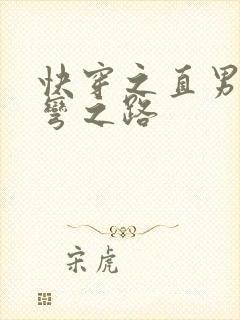 快穿之直男
彎之路
宋虎